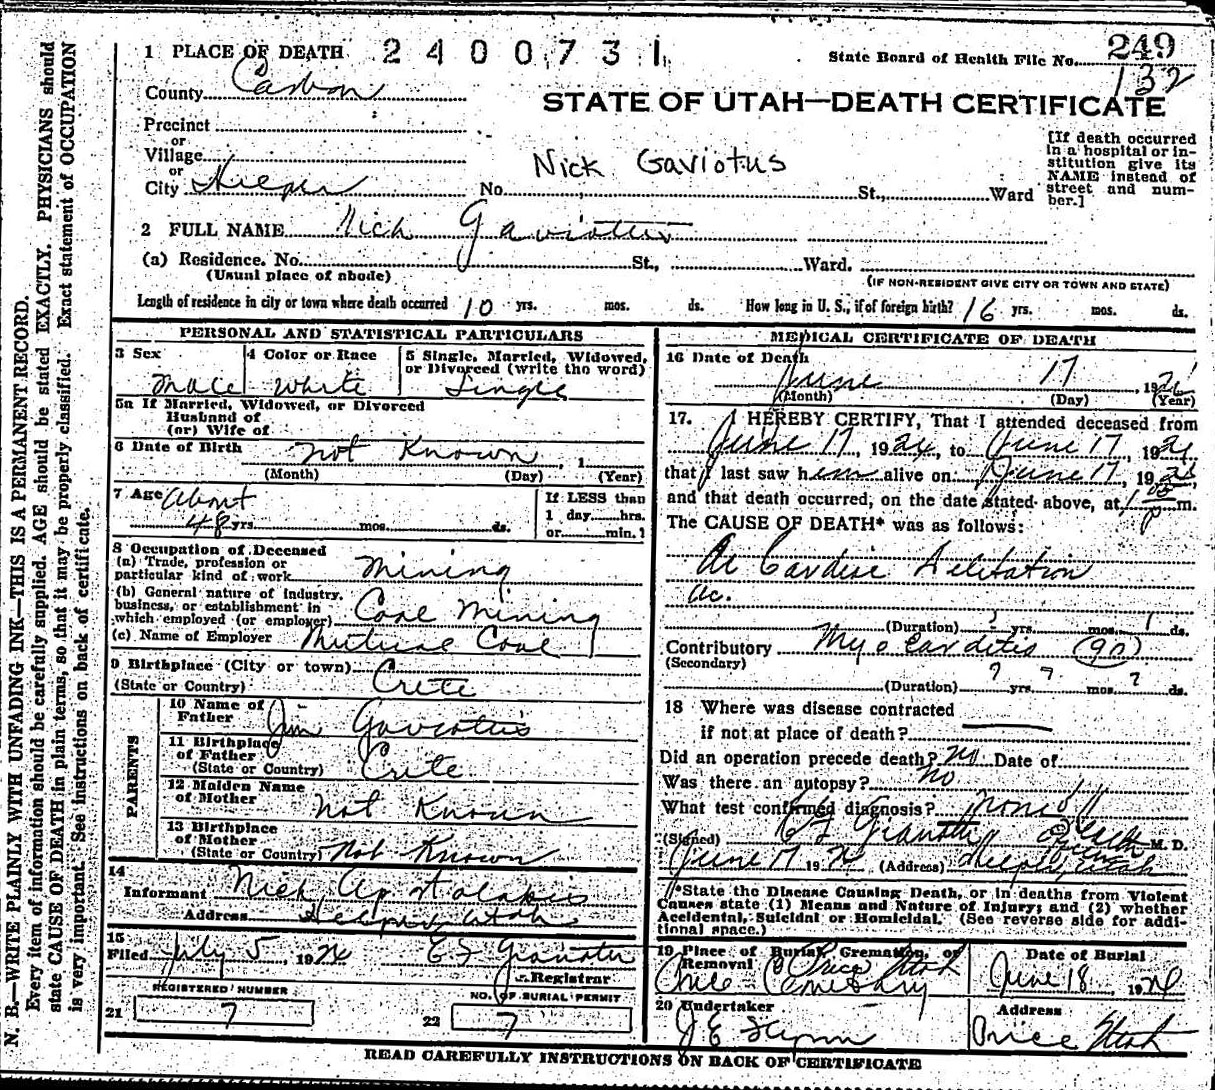 1 PLACE OF DEATH 2400731
State Board of Health File No. 249
132
County Carbon
STATE OF UTAH—DEATH CERTIFICATE
Precinct
or
Village
or
City Helper No. St., Ward
[If death occurred in a hospital or institution give its NAME instead of street and number.]
Nick Gaviotus
2 FULL NAME Nick Gaviotus
(a) Residence. No. St., Ward.
(Usual place of abode) (IF NON-RESIDENT GIVE CITY OR TOWN AND STATE)
Length of residence in city or town where death occurred 10 yrs. mos. ds. How long in U. S., if of foreign birth? 16 yrs. mos. ds.
PERSONAL AND STATISTICAL PARTICULARS
3 Sex Male
4 Color or Race White
5 Single, Married, Widowed, or Divorced (write the word) Single
5a If Married, Widowed, or Divorced
Husband of
(or) Wife of
6 Date of Birth Not Known, 1
(Month) (Day) (Year)
7 Age About
48 yrs. mos. ds.
If LESS than
1 day hrs.
or min. ?
8 Occupation of Deceased
(a) Trade, profession or
particular kind of work Mining
(b) General nature of industry,
business, or establishment in
which employed (or employer) Coal Mining
(c) Name of Employer Mutual Coal
9 Birthplace (City or town)
(State or Country) Crete
PARENTS
10 Name of Father Jim Gaviottis
11 Birthplace
of Father
(State or Country) Crite
12 Maiden Name
of Mother Not Known
13 Birthplace
of Mother
(State or Country) Not Known
14
Informant Nick Apostolakis
Address Helper, Utah
15
Filed July 5, 1924 E F Gianotti
Registrar
REGISTERED NUMBER
21 7
NO. OF BURIAL PERMIT
22 7
MEDICAL CERTIFICATE OF DEATH
16 Date of Death
June 17, 1924
(Month) (Day) (Year)
17. I HEREBY CERTIFY, That I attended deceased from
June 17, 1924, to June 17, 1924
that I last saw him alive on June 17, 1924,
and that death occurred, on the date stated above, at 1 p m.
The CAUSE OF DEATH* was as follows:
Ac Cardiac Dilitation
Ac.
(Duration) ? yrs. mos. 1 ds.
Contributory Myocarditis (90)
(Secondary)
(Duration) ? yrs. ? mos. ? ds.
18 Where was disease contracted
if not at place of death?
Did an operation precede death? No Date of
Was there an autopsy? No
What test confirmed diagnosis? None
(Signed) Gianotti M. D.
June 17 1924 (Address) Helper, Utah
*State the Disease Causing Death, or in deaths from Violent
Causes state (1) Means and Nature of Injury; and (2) whether
Accidental, Suicidal or Homicidal. (See reverse side for additional space.)
19 Place of Burial, Cremation, or
Removal Price Utah
Price Cemetary
Date of Burial
June 18, 1924
20 Undertaker
J E Flynn
Address
Price Utah
READ CAREFULLY INSTRUCTIONS ON BACK OF CERTIFICATE
N. B.—WRITE PLAINLY WITH UNFADING INK—THIS IS A PERMANENT RECORD.
Every item of information should be carefully supplied. AGE should be stated EXACTLY. PHYSICIANS should
state CAUSE OF DEATH in plain terms, so that it may be properly classified. Exact statement of OCCUPATION
is very important. See instructions on back of certificate.